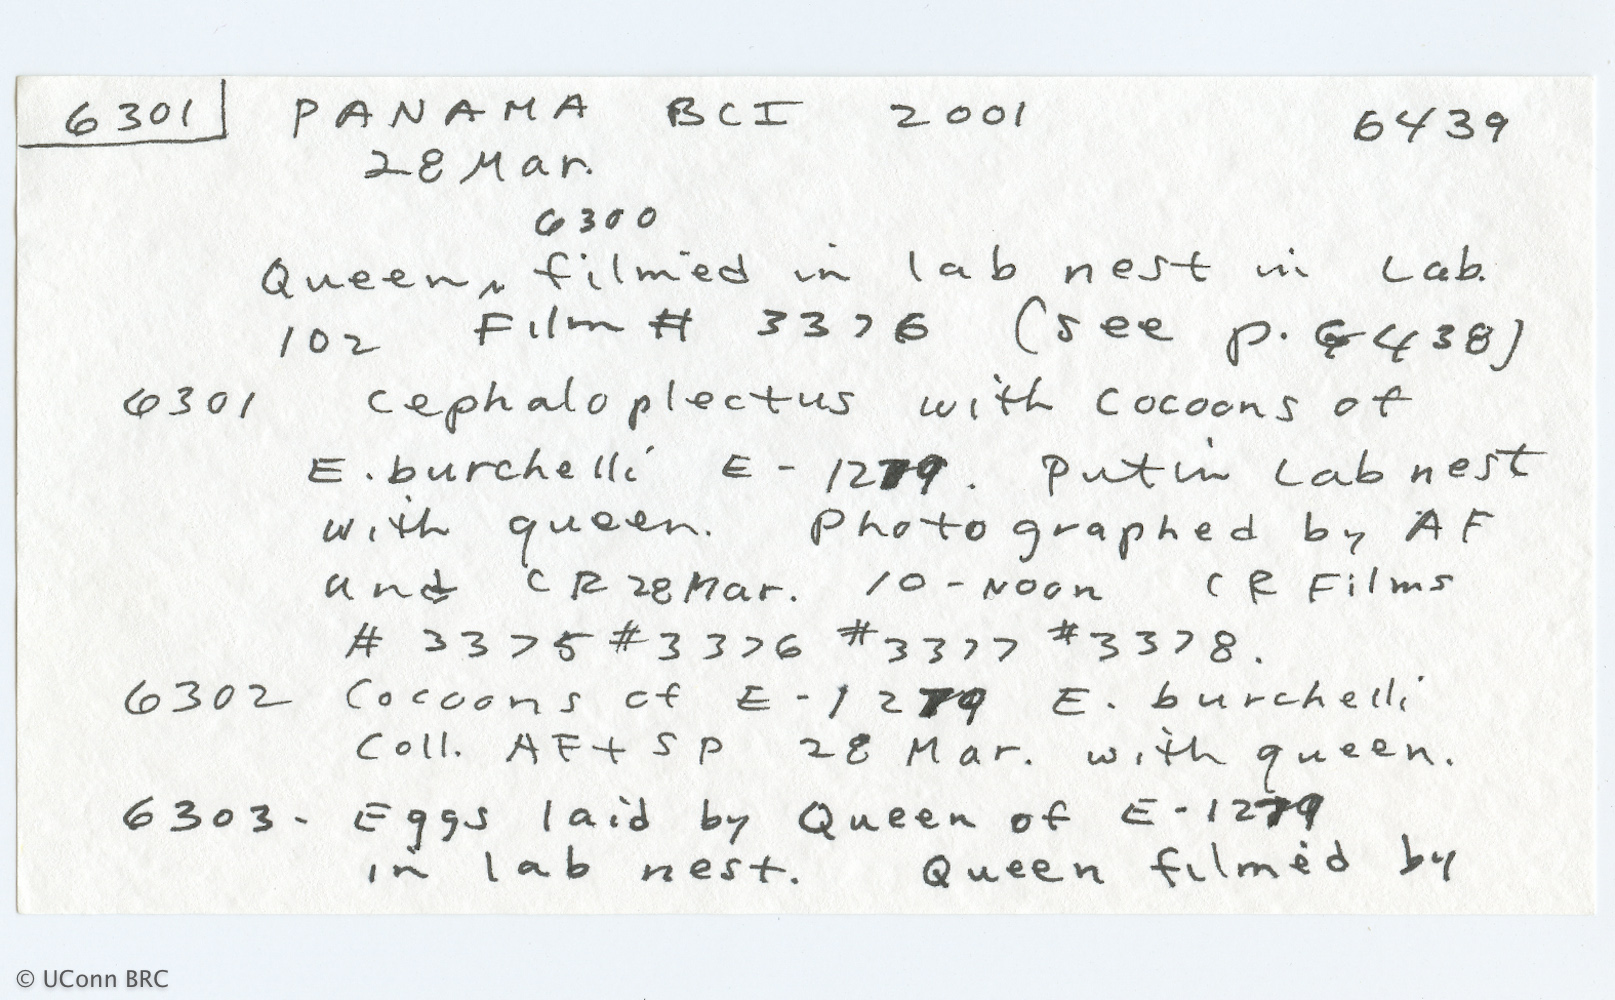 6301 PANAMA BCI 2001 6439
28 Mar.
6300
Queen, filmed in lab nest in Lab.
102 Film # 3376 (see p. 6438)
6301 Cephaloplectus with cocoons of
E. burchelli E-1279. Put in Lab nest
with queen. Photographed by AF
and CR 28 Mar. 10-Noon CR Films
# 3375 #3376 #3377 #3378.
6302 Cocoons of E-1279 E. burchelli
Coll. AF + SP 28 Mar. with queen.
6303- Eggs laid by Queen of E-1279
in lab nest. Queen filmed by
© UConn BRC